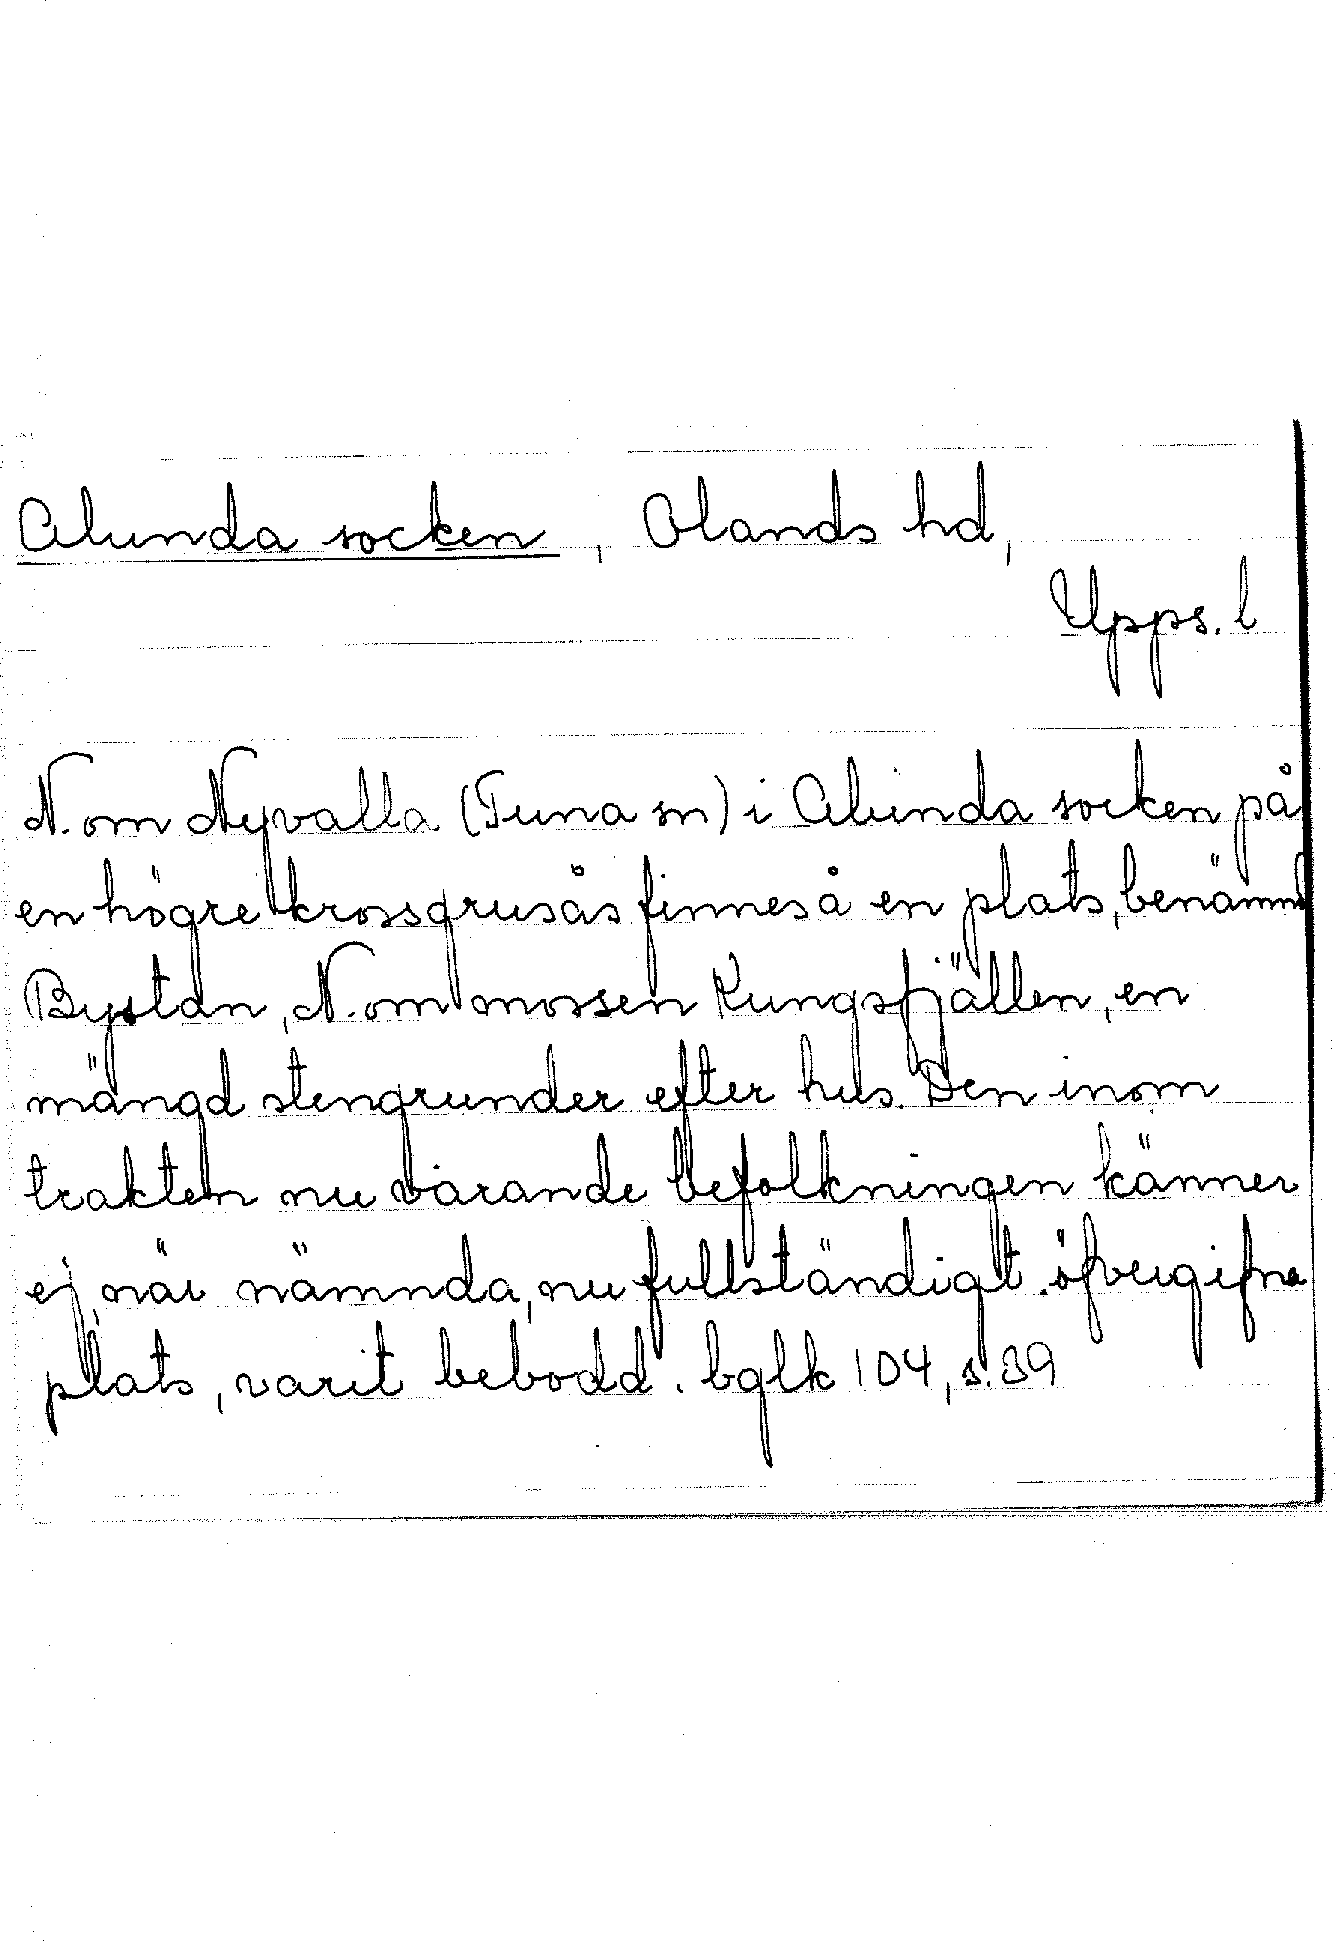 Alunda socken, Olands hd,
Upps. l
N. om Nyvalla (Tuna sn) i Alunda socken på
en högre krossgrusås finnes å en plats, benämnd
Bystan, N. om mossen Kungsfjällen, en
mängd stengrunder efter hus. Den inom
trakten nu varande befolkningen känner
ej, när nämnda, nu fullständigt öfvergifna
plats, varit bebodd. bglk 104, s. 39